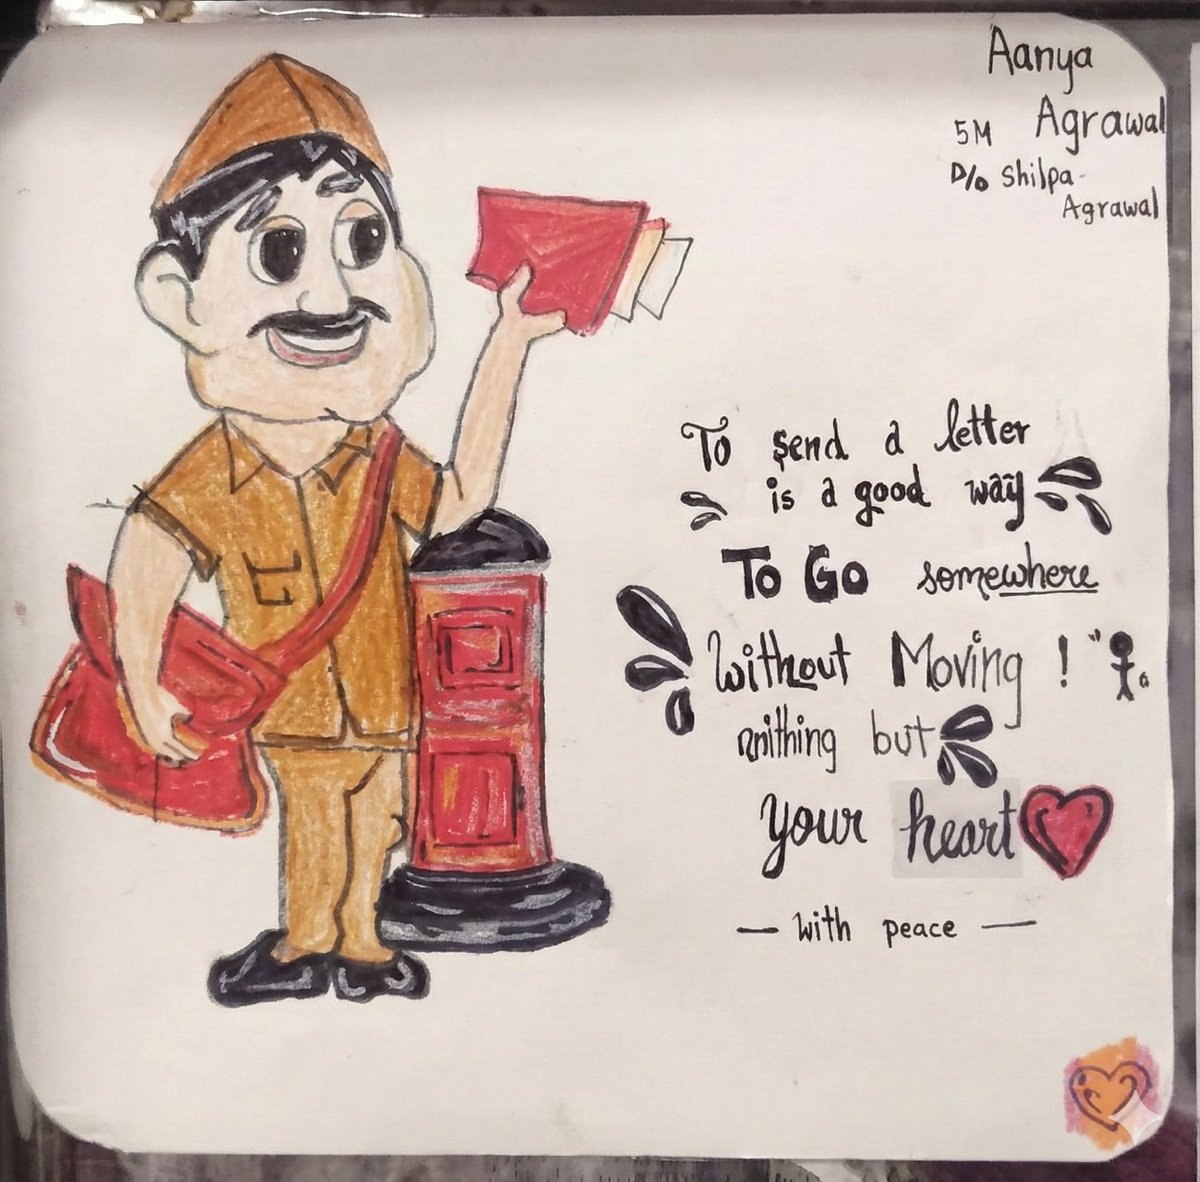 Aanya
Agrawal
5M
D/o Shilpa-
Agrawal
To send a letter
is a good way
To Go somewhere
Without Moving ! "
nnithing but
your heart
— with peace —